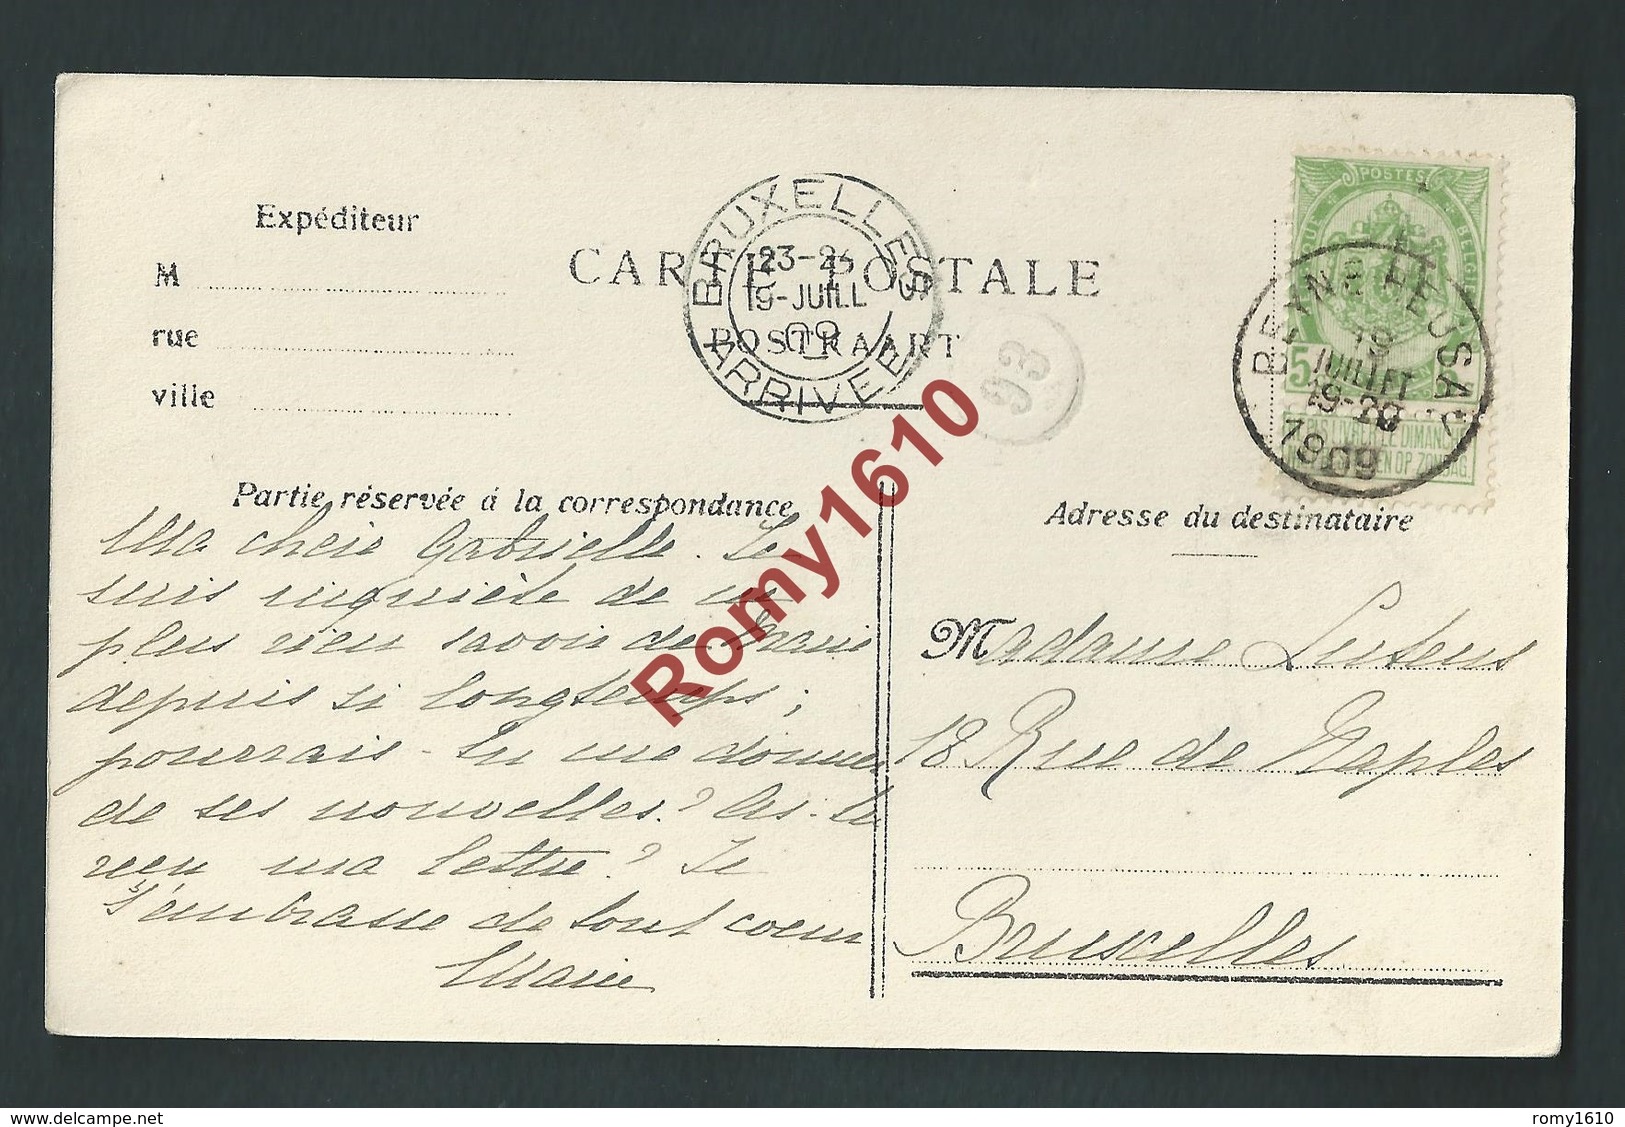 Expéditeur
M
rue
ville
CARTE POSTALE
POSTKAART
BRUXELLES
23-24
19-JUILL
09
ARRIVEE
93
POSTES
BELGIQUE
5
NE PAS LIVRER LE DIMANCHE
NIET BESTELLEN OP ZONDAG
BEYNE-HEUSAY
19
JUILLET
19-20
1909
Partie réservée á la correspondance
Ma chère Gabrielle. Je
suis inquiète de ne
plus rien savoir de Marie
depuis si longtemps;
pourrais-tu me donner
de ses nouvelles? As-tu
reçu ma lettre? Je
t'embrasse de tout coeur
Marie
Adresse du destinataire
Madame Lutens
18 Rue de Naples
Bruxelles
Romy1610
delcampe.net
romy1610